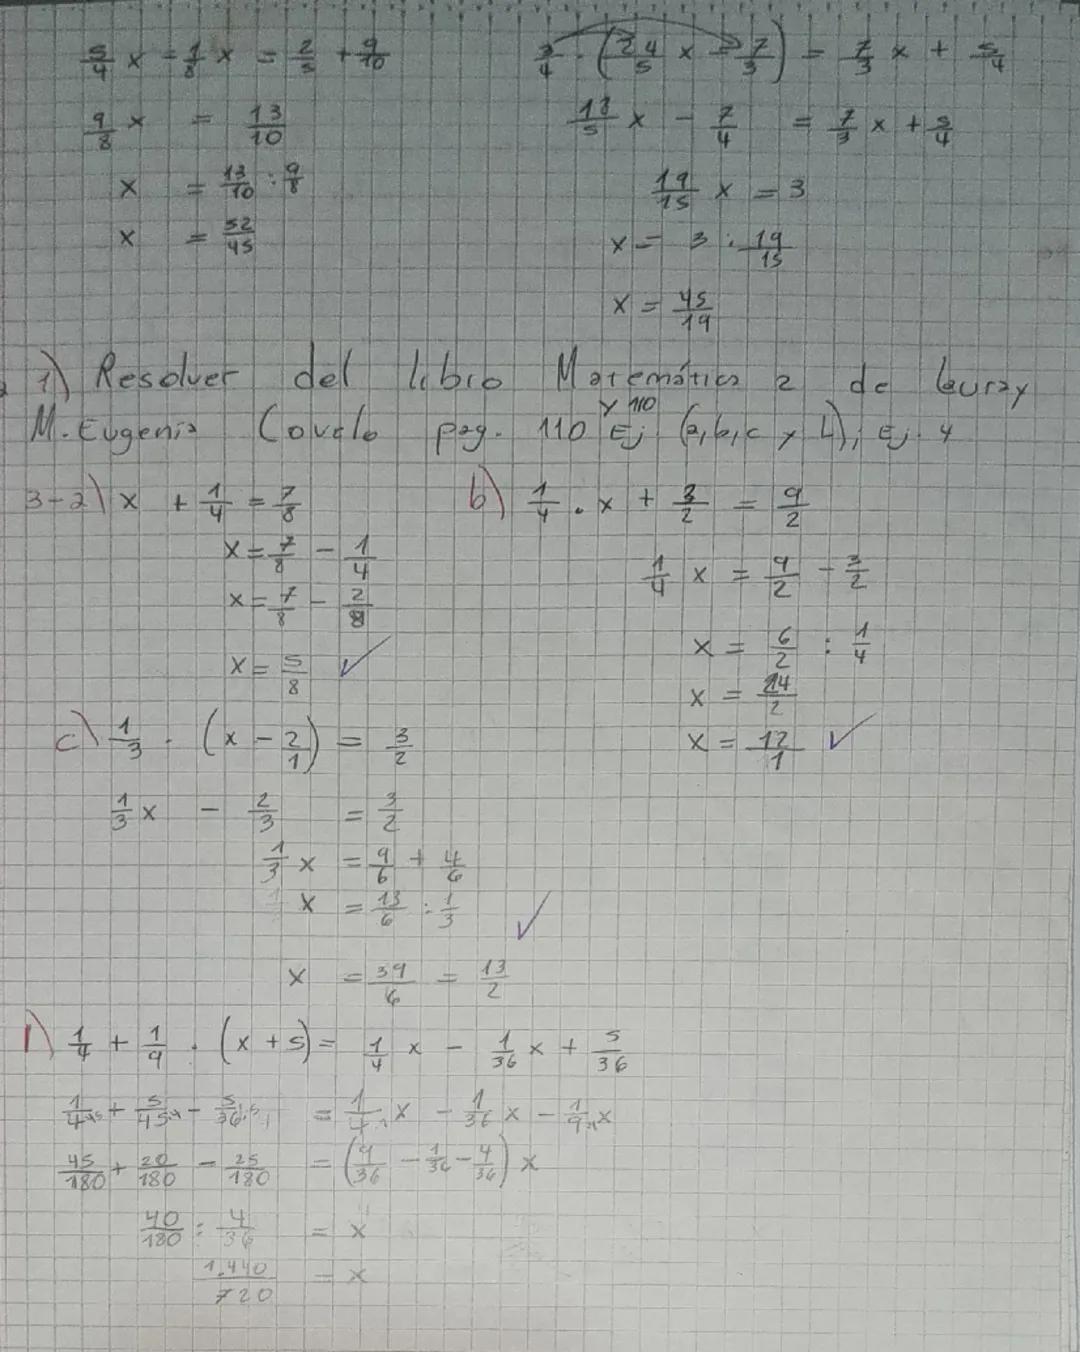 5/4 x - 1/8 x = 2/5 + 9/10
9/8 x = 13/10
x = 13/10 : 9/8
x = 52/45
3/4 · (24/5 x - 7/3) = 7/3 x + 5/4
18/5 x - 7/4 = 7/3 x + 5/4
19/15 x = 3
x = 3 : 19/15
x = 45/19
1) Resolver del libro Matemática 2 de Laura y
y 110
M. Eugenia Covelo pag. 110 Ej (a, b, c y L), Ej. 4
3-a) x + 1/4 = 7/8
x = 7/8 - 1/4
x = 7/8 - 2/8
x = 5/8 ✓
b) 1/4 . x + 3/2 = 9/2
1/4 x = 9/2 - 3/2
x = 6/2 : 1/4
x = 24/2
x = 12/1 ✓
c) 1/3 . (x - 2/1) = 3/2
1/3 x - 2/3 = 3/2
1/3 x = 9/6 + 4/6
x = 13/6 : 1/3
x = 39/6 = 13/2 ✓
1/4 + 1/9 . (x + 5) = 1/4 x - 1/36 x + 5/36
1/4 + 5/45 - 5/36 = 1/4 x - 1/36 x - 1/9 x
45/180 + 20/180 - 25/180 = (9/36 - 1/36 - 4/36) x
40/180 : 4/36 = x
1.440/720 = x